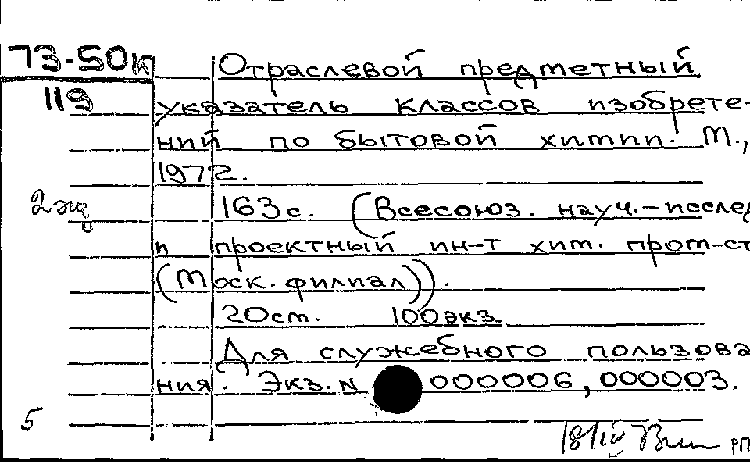 73-50к Отраслевой предметный
119 указатель классов изобрете-
ний по бытовой химии. М.,
1972.
2 экз 163 с. (Всесоюз. науч.-исслед
и проектный ин-т хим. пром-ст
(Моск. филиал)).
20 см. 100 экз.
Для служебного пользова
ния. Экз. N 000006, 000003.
5
РП